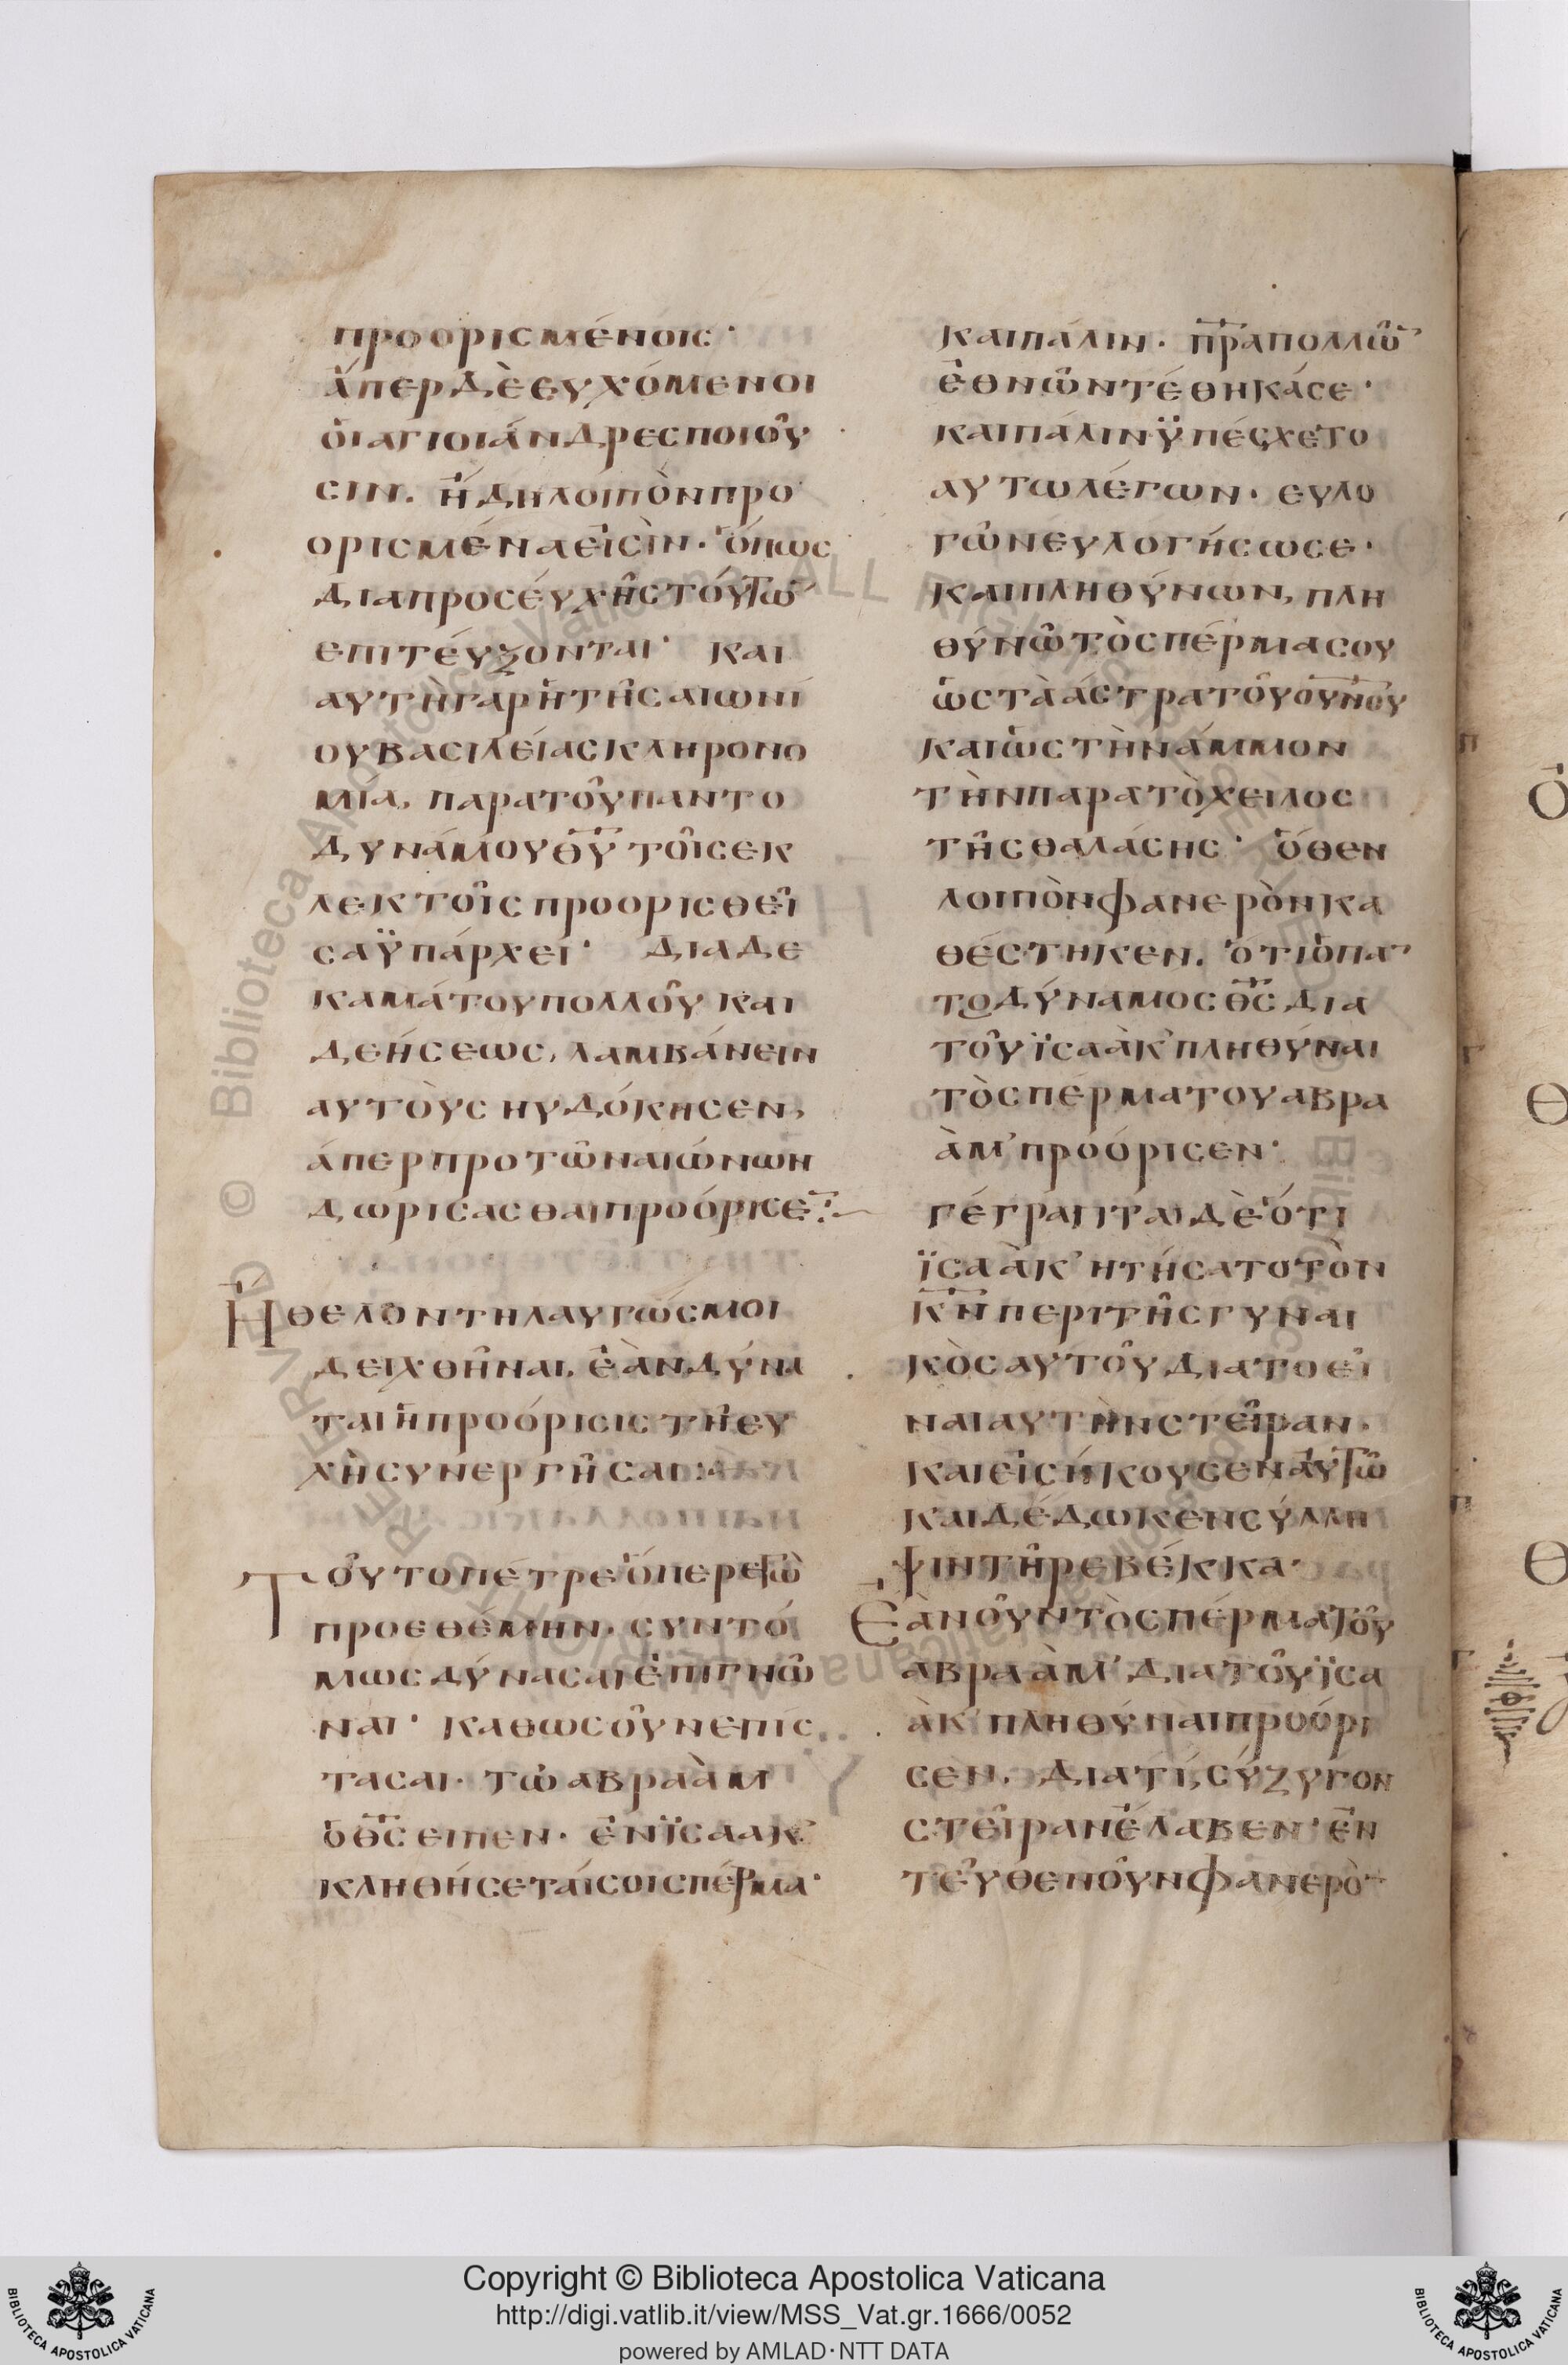 προορισμένοις·
ἅπερ δὲ ευχόμενοι
ὁι αγιοι άνδρες ποιοῦ
σιν. ἤδη λοιπὸν προ
ορισμένα εἰσὶν. ὅπως
δια προσέυχῆς τόυτω̄
επιτέυξονται· και
αυτὴ γαρ ἡ τῆς αιωνί
ου βασιλείας κληρονο
μία, παρα τοῦ παντο
δυνάμου θ̅υ̅ τοῖς εκ
λεκτοῖς προορισθεῖ
σα ϋπάρχει· δια δε
καμάτου πολλοῦ και
δεήσεως, λαμβάνειν
αυτὸυς ηυδόκησεν,
άπερ προ τῶν αιώνων
δωρισασθαι προόρισε̅:
Ήθελον τηλαυγώς μοι
δειχθῆναι, ἐὰν δύνα
ται ἡ προόρισις τῆ ευ
χὴ συνεργῆσαι:
Τοῦτο πέτρε ὅπερ εγὼ
προεθέμην, συντό
μως δύνασαι ἐπιγνῶ
ναι· καθως οῦν επίσ
τασαι. τῶ αβραὰμ
ὁ θ̅ς̅ ειπεν. ἐν ϊσαακ
κληθήσεταί σοι σπέρμα·
και πάλιν. π̅ρ̅α πολλῶ̅
ἐθνῶν τέθηκά σε·
και πάλιν ϋπέσχετο
αυτω λέγων. ευλο
γῶν ευλογήσω σε·
και πληθύνων, πλη
θύνῶ τὸ σπέρμα σου
ὡς τὰ άστρα τοῦ ο̅υ̅ν̅ο̅υ̅
και ὡς τὴν άμμον
τὴν παρα τὸ χειλος
τῆς θαλάσης· ὅθεν
λοιπὸν φανερὸν κα
θέστηκεν. ὅτι ὁ πα̅
τοδύναμος θ̅ς̅ δια
τοῦ ϊσαὰκ πληθύναι
τὸ σπέρμα του αβρα
ὰμ προόρισεν·
γέγράπται δὲ ὅτι
ϊσαὰκ ητήσατο τὸν
κ̅ν̅ περι τῆς γυναι
κὸς αυτοῦ δια το εἶ
ναι αυτὴν στεῖραν.
και εἰσήκουσεν ἀυτῶ
και δέδωκεν σύλλη
ψιν τῆ ρεβέκκα·
Ἐὰν οῦν τὸ σπέρμα τοῦ
αβραὰμ δια τοῦ ϊσα
ὰκ πληθύναι προόρι
σεν. διατί, σύζυγον
στεῖραν ἔλαβεν· ἐν
τεῦθεν οῦν φανερὸ̅
Copyright © Biblioteca Apostolica Vaticana
http://digi.vatlib.it/view/MSS_Vat.gr.1666/0052
powered by AMLAD·NTT DATA
BIBLIOTECA APOSTOLICA VATICANA
BIBLIOTECA APOSTOLICA VATICANA